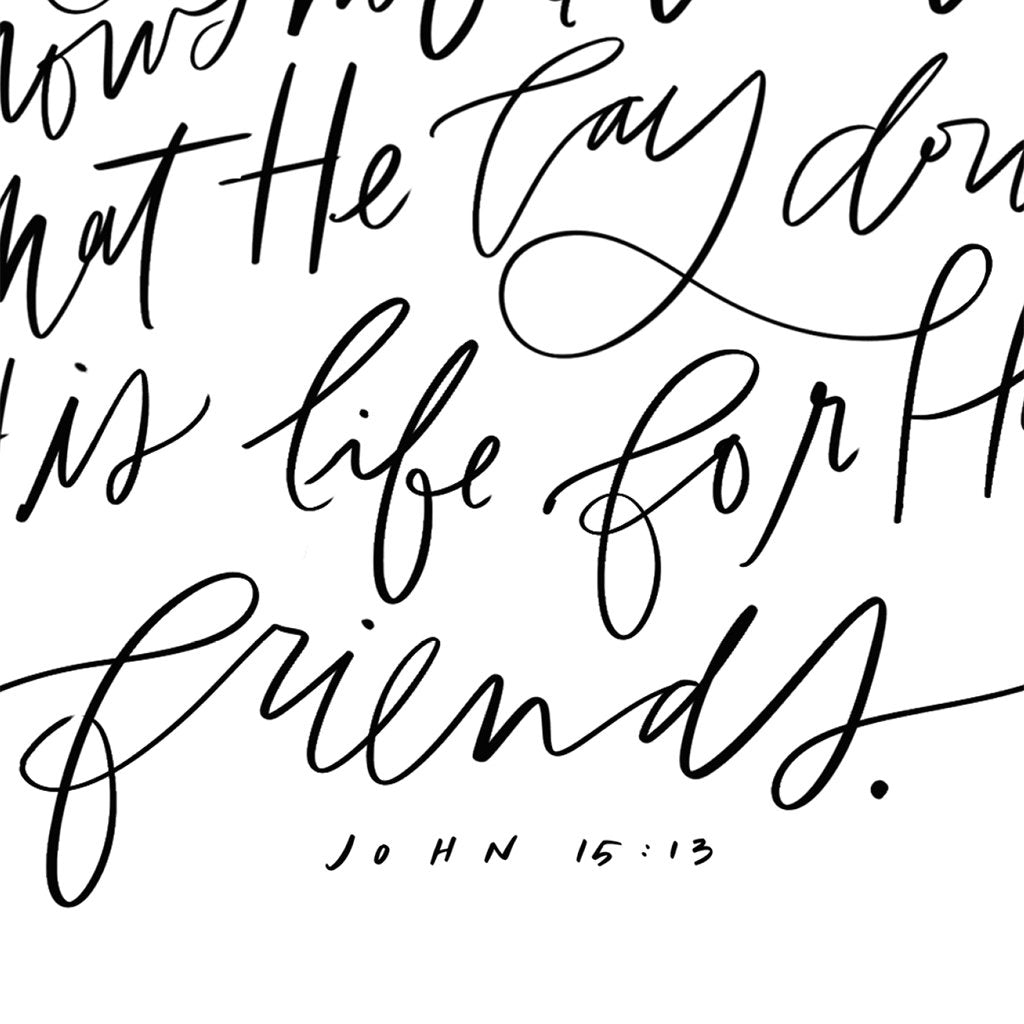 hat He lay dow
is life for H
friends.
JOHN 15:13